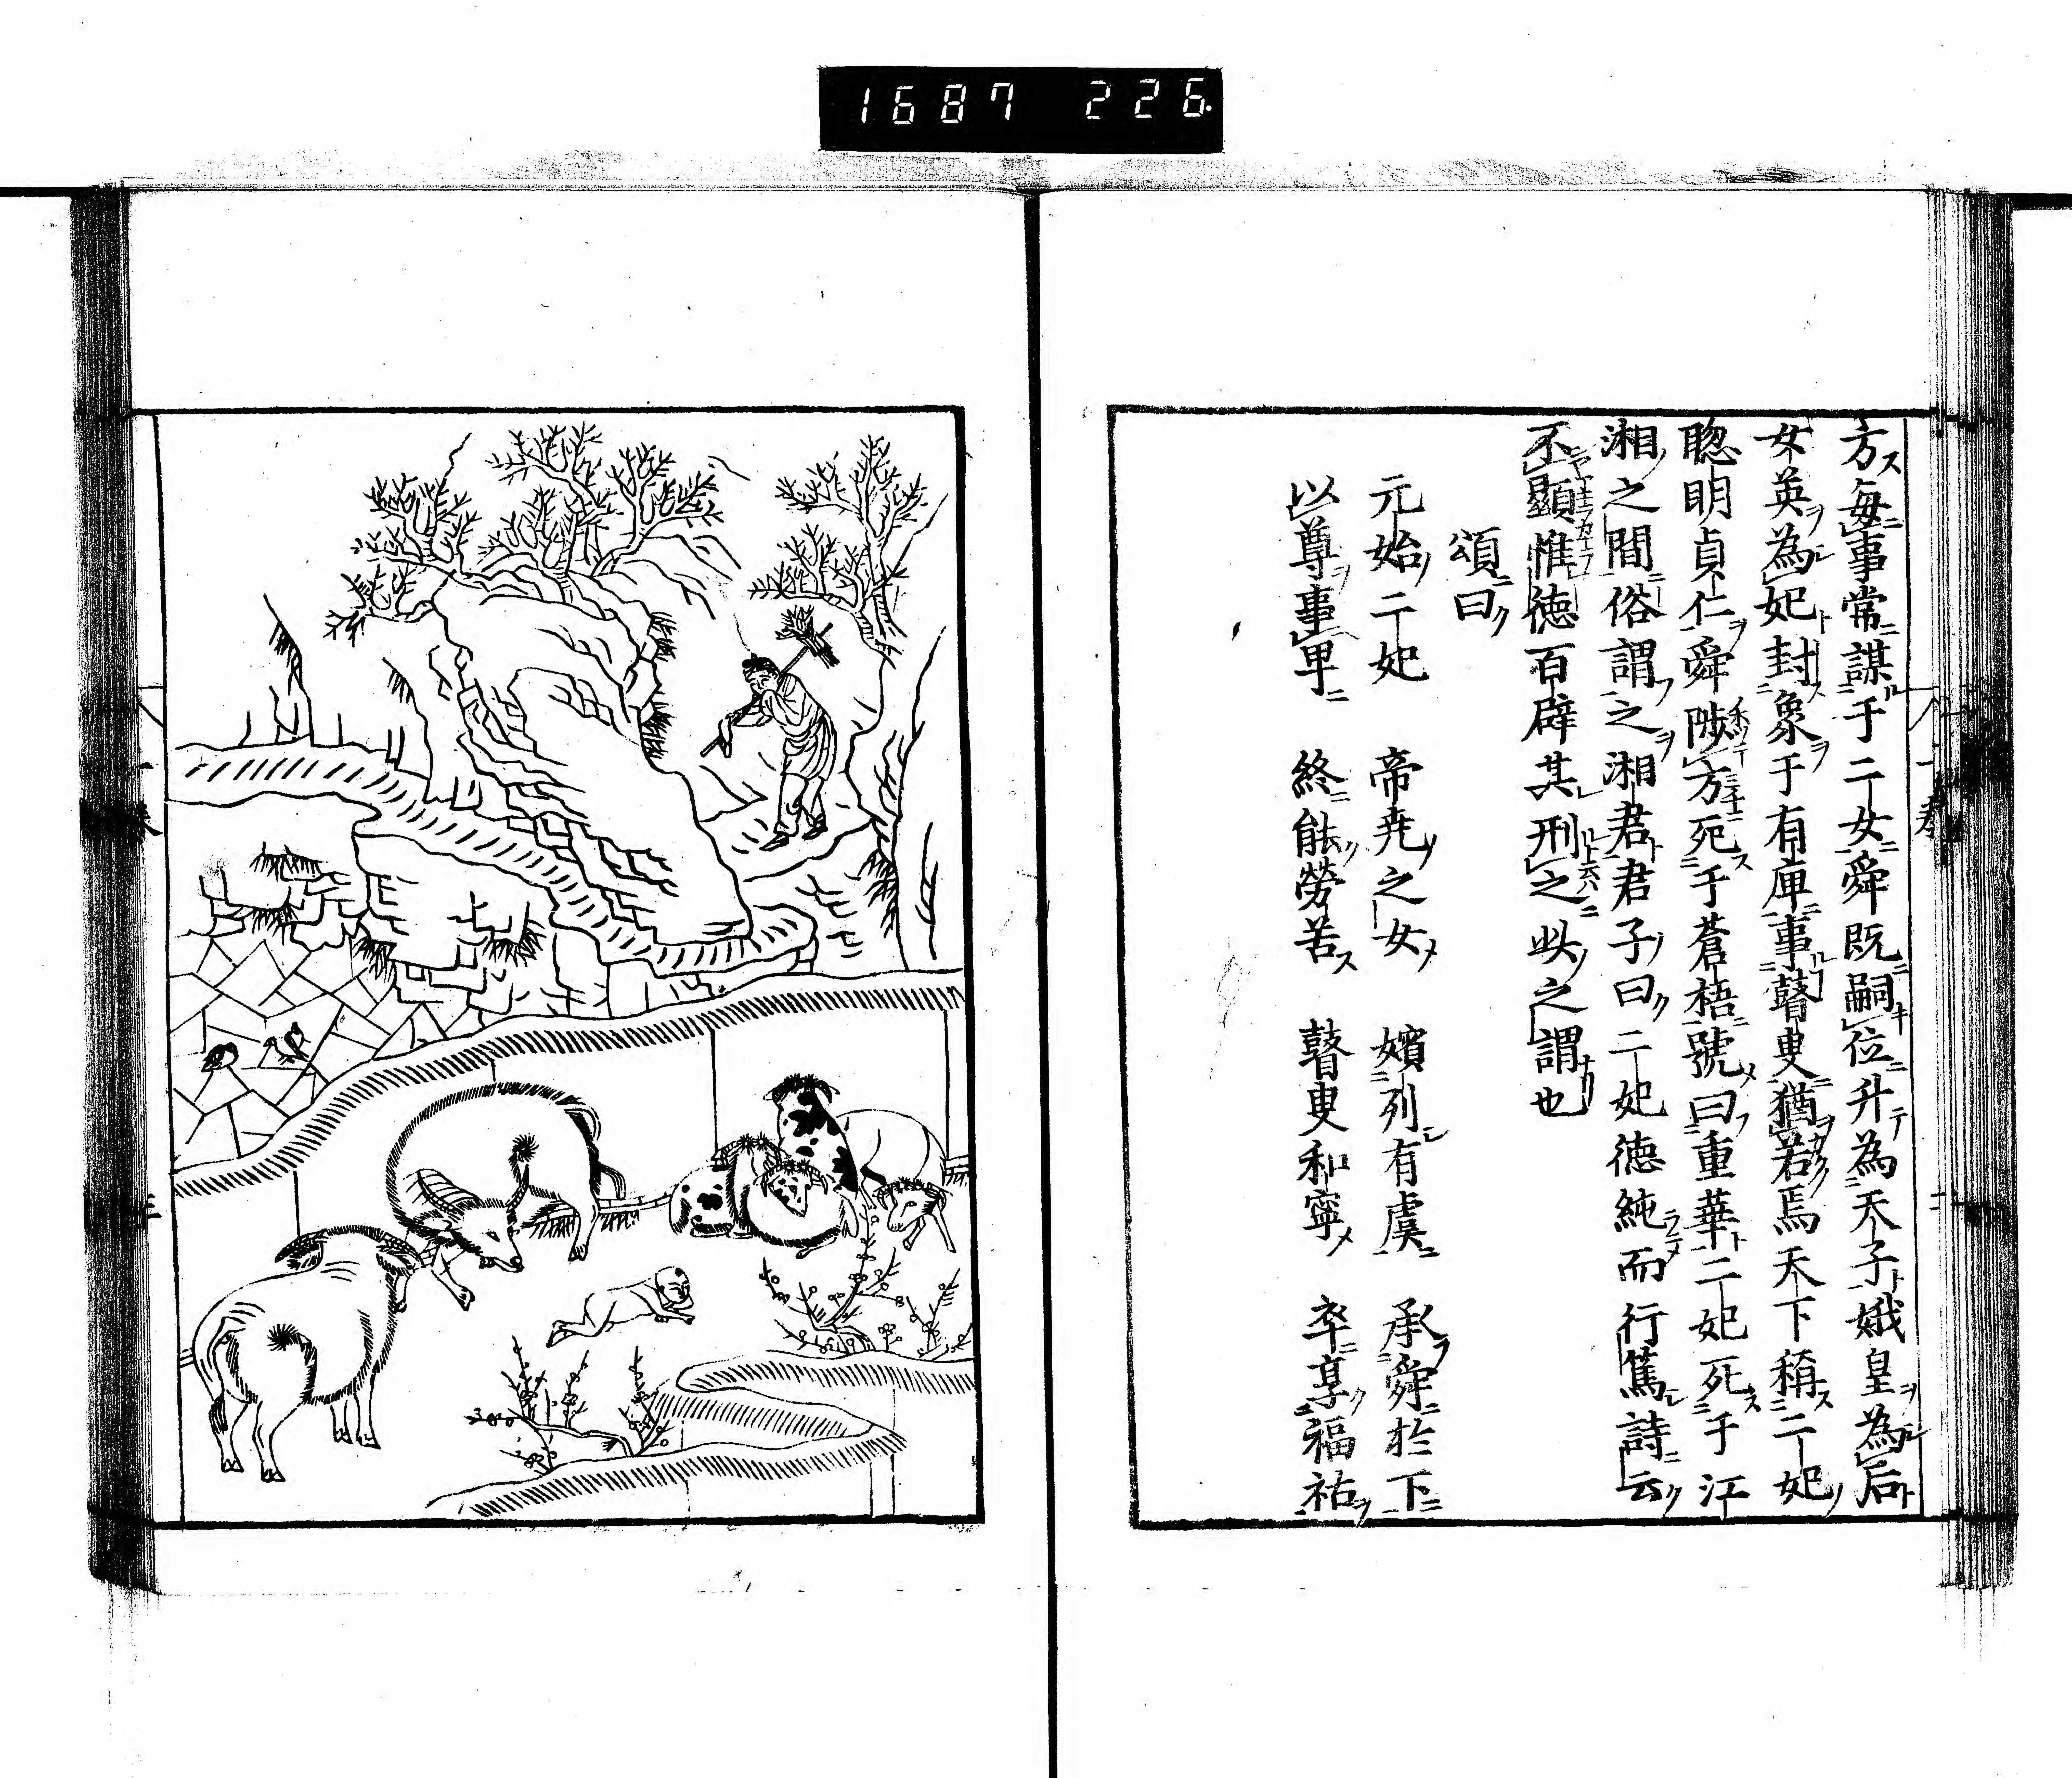 1687 226.
方毎事常謀于二女舜既嗣位升為天子娥皇為后
女英為妃封象于有庳事瞽叟猶若焉天下稱二妃
聦明貞仁舜陟方死于蒼梧號曰重華二妃死于江
湘之間俗謂之湘君君子曰二妃德純而行篤詩云
不顯惟德百辟其刑之此之謂也
頌曰
元始二妃 帝堯之女 嬪列有虞 承舜於下
以尊事卑 終能勞苦 瞽叟和寧 卒享福祐